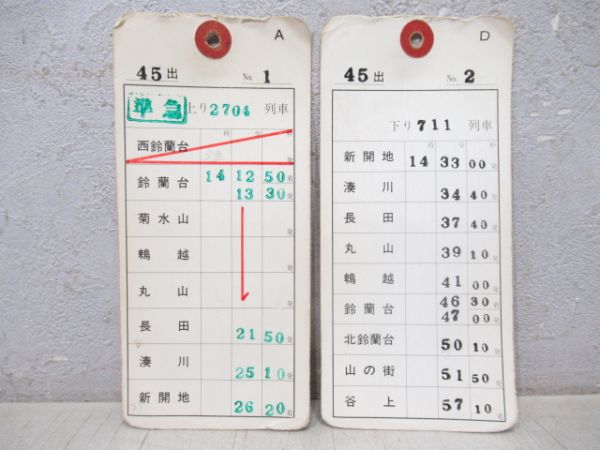 A
45出 No. 1
準急 上り 2704 列車
時 分 秒
西鈴蘭台 発
鈴蘭台 14 12 50 着
13 30 発
菊水山 発
鵯越 発
丸山 発
長田 21 50 発
湊川 25 10 発
新開地 26 20 着
D
45出 No. 2
下り 711 列車
時 分 秒
新開地 14 33 00 発
湊川 34 40 発
長田 37 40 発
丸山 39 10 発
鵯越 41 00 発
鈴蘭台 46 30 着
47 00 発
北鈴蘭台 50 10 発
山の街 51 50 発
谷上 57 10 着